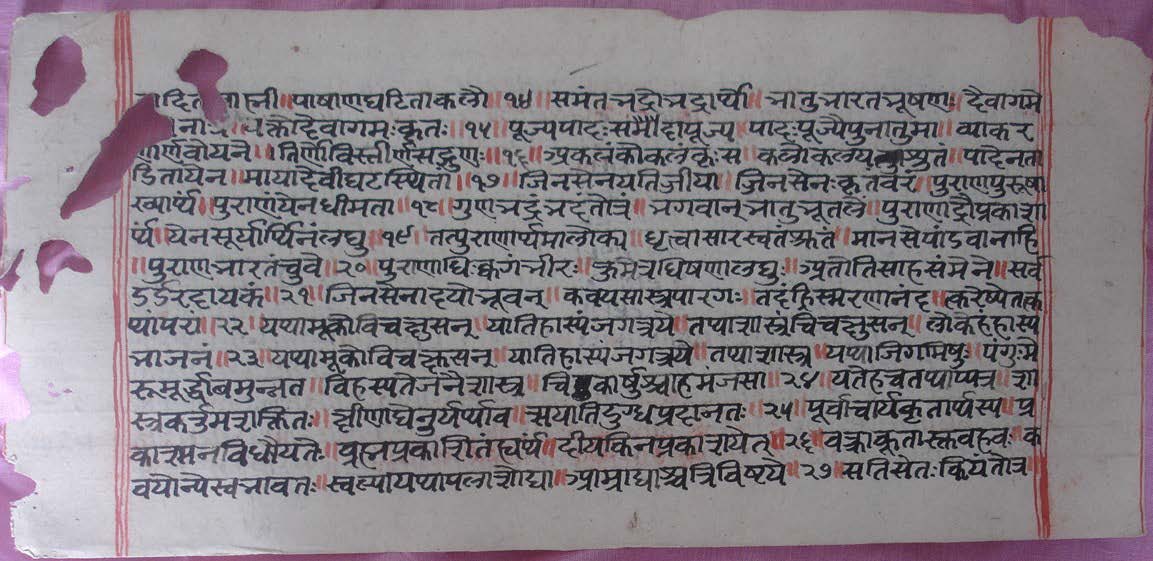 वादिता पाषाणघटिताकलौ ॥ १४ ॥ समंतभद्रौभद्रार्थो ॥ भातुभारतभूषणः ॥ दैवागमै
दैवागमःकृतः ॥ १५ ॥ पूज्यपादः पूज्य ॥ पादःपूज्यैपुनातुमां ॥ व्याकर
र्णार्णवोयनै ॥ तिर्णोविस्तीर्णसद्गुणः ॥ १६ ॥ अकलंकौकलंकःस ॥ कलौकलय श्रुतं ॥ पादैनता
डितायेन ॥ मायादैवीघटस्थिता ॥ १७ ॥ जिनसैनयतिर्जीया ॥ जिनसैनःकृतंवरं ॥ पुराणपुरुषा
ख्यार्थं ॥ पुराणंयेनधीमता ॥ १८ ॥ गुणभद्रंभदंतोत्र ॥ भगवान्भातुभूतलै ॥ पुराणाद्रौप्रकाशा
र्थं ॥ येनसूर्यार्यितंलघु ॥ १९ ॥ तत्पुराणार्थमालौक्य ॥ धृत्वासारस्वतंश्रुतं ॥ मानसैपांडवानांहि
॥ पुराणभारतंब्रुवै ॥ २० ॥ पुराणाब्धिःक्वगंभीरः ॥ क्वमैत्रधिषणालघुः ॥ अतोतिसाहसंमैनै ॥ सर्व
ऽर्ऽरदायकं ॥ २१ ॥ जिनसैनादयोभूवन् ॥ कवयःसास्त्रपारगः ॥ तदंह्रिस्मरणानंद ॥ त्करैष्पैतत्क
थांपरां ॥ २२ ॥ यथामूकोविवक्षुसन् ॥ यातिहास्यंजगत्त्रये ॥ तथाशास्त्रंचिवक्षुसन् ॥ लौकेहंहास्य
भाजनं ॥ २३ ॥ यथामूकोविवक्षुसन् ॥ यातिहास्यंजगत्त्रये ॥ तथाशास्त्र ॥ यथाजिगमिषुः पंगुःमै
रुमूर्द्धानमुन्नत ॥ विहस्यतैजनैशास्त्र ॥ चिकीर्षुश्चाहमंजसा ॥ २४ ॥ यतैहचतथाप्यत्र ॥ शा
स्त्रकर्तुमशक्तितः ॥ क्षीणाधेनुर्यथाव ॥ त्सयातिदुग्धप्रदानतः ॥ २५ ॥ पूर्वाचार्यकृतार्थस्य ॥ प्र
काशनविधौयतै ॥ व्रघ्नप्रकाशितंह्यर्थं ॥ दीपःकिंनप्रकाशयेत् ॥ २६ ॥ वक्राकूतास्तुबहवः ॥ क
वयोन्येस्वभावतः ॥ स्वल्पायथापलाशौद्या ॥ आम्राद्याश्चत्रिविष्टपे ॥ २७ ॥ सतिसैतःकियंतोत्र ॥